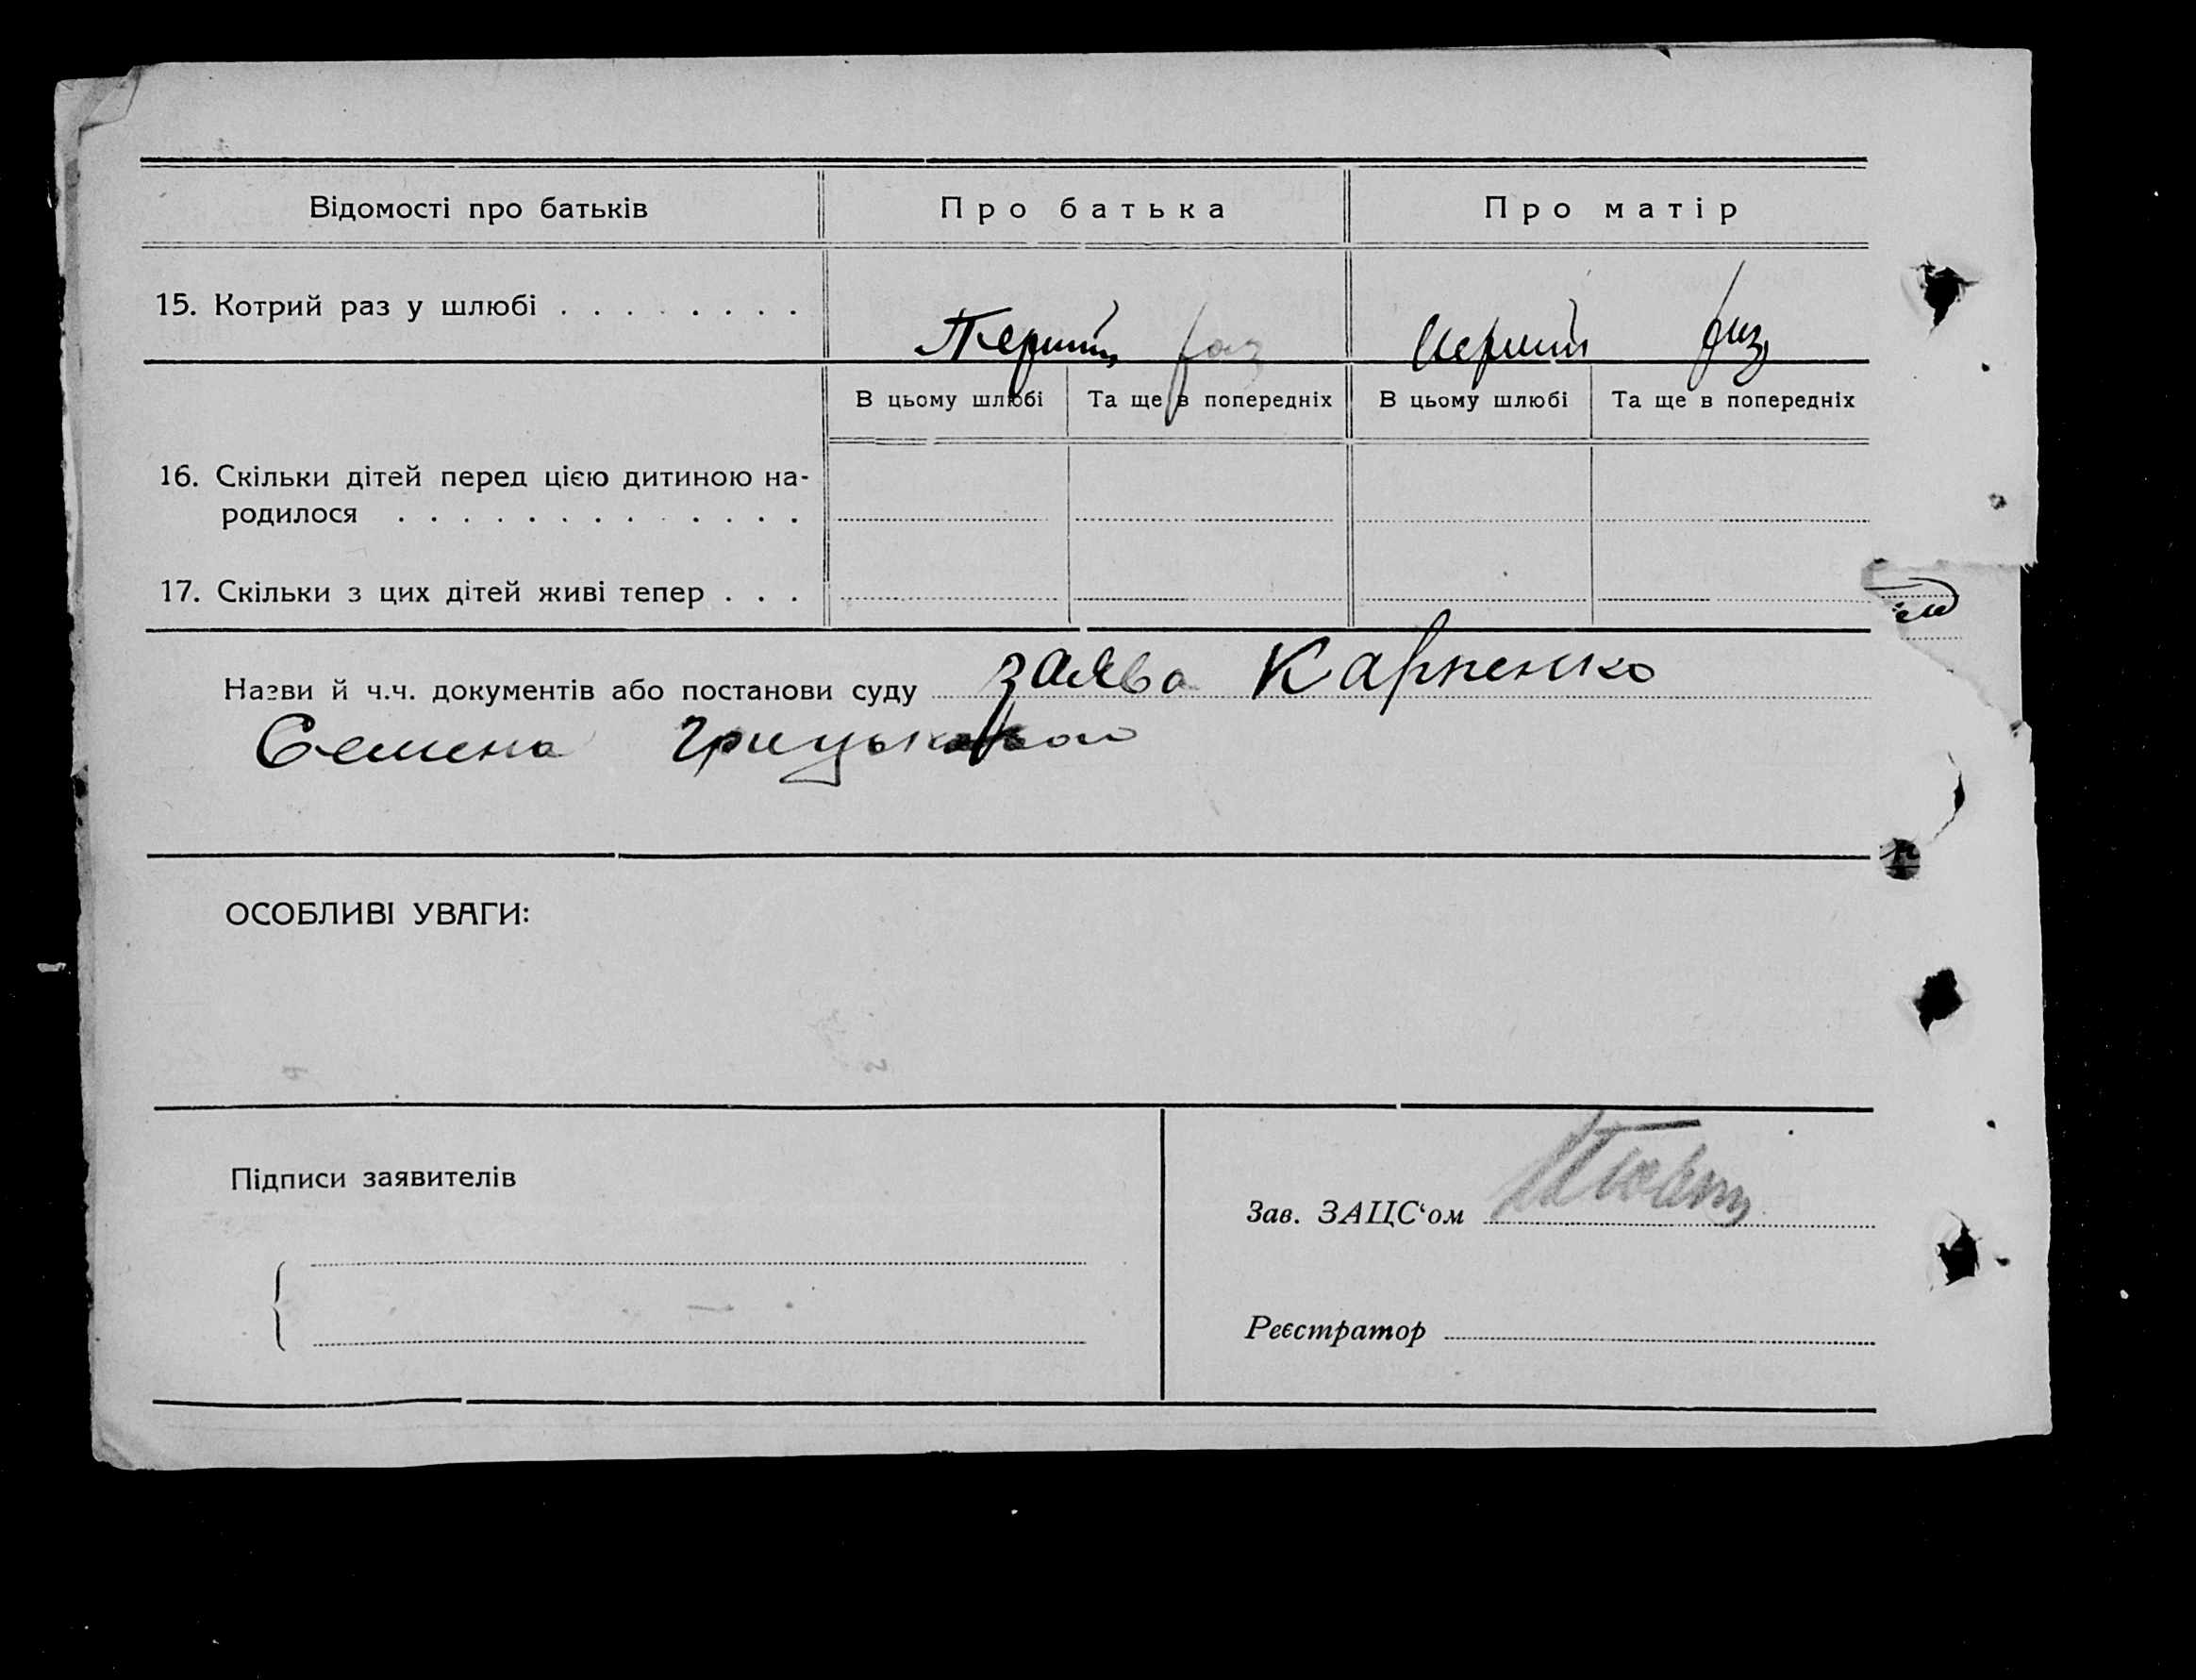 Відомості про батьків Про батька Про матір
15. Котрий раз у шлюбі . . . . . . . . Перший раз Перший раз
В цьому шлюбі Та ще в попередніх В цьому шлюбі Та ще в попередніх
16. Скільки дітей перед цією дитиною на-
родилося . . . . . . . . . . . . .
17. Скільки з цих дітей живі тепер . . .
Назви й ч.ч. документів або постанови суду заява Карпенко
Семена
ОСОБЛИВІ УВАГИ:
Підписи заявителів
Зав. ЗАЦС‘ом
Реєстратор